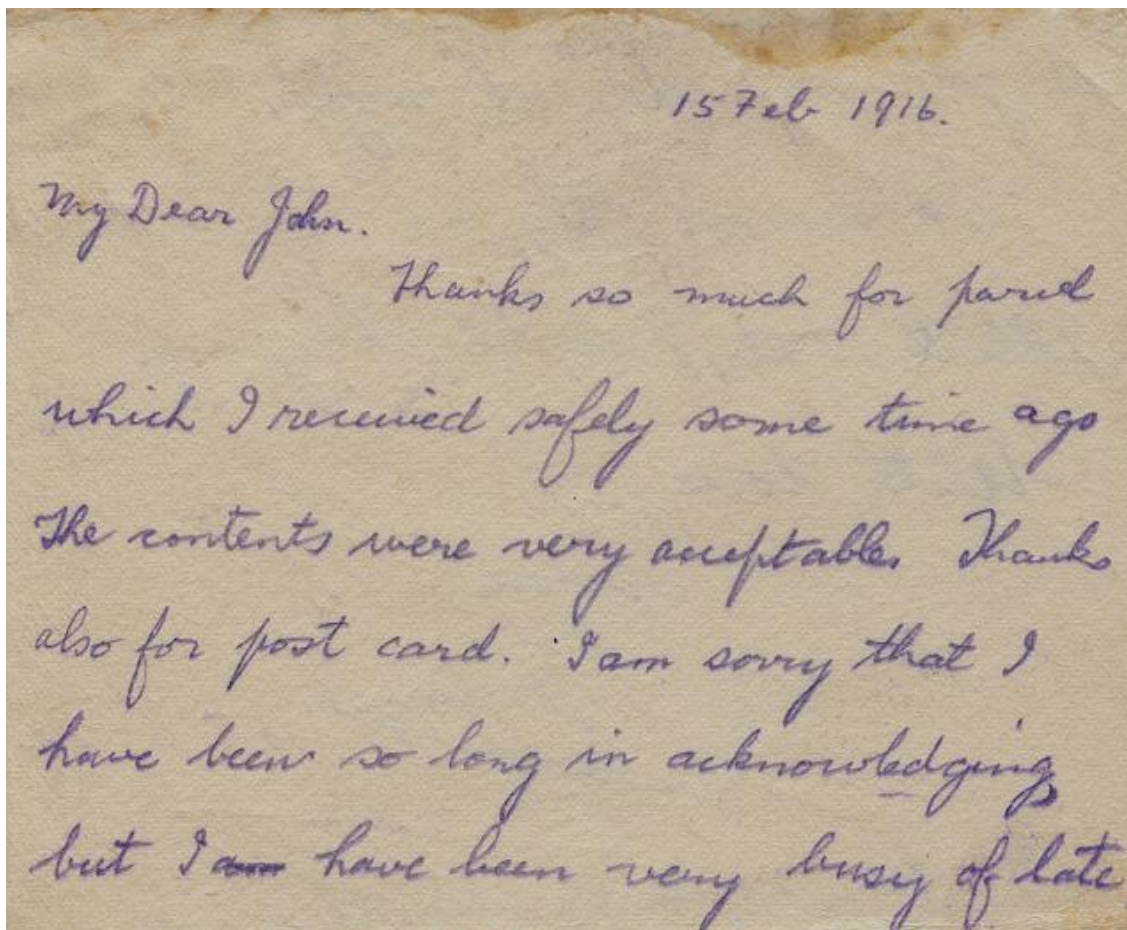 15 Feb 1916.
My Dear John.
Thanks so much for parcel
which I received safely some time ago
The contents were very acceptable. Thanks
also for post card. I am sorry that I
have been so long in acknowledging
but I am have been very busy of late